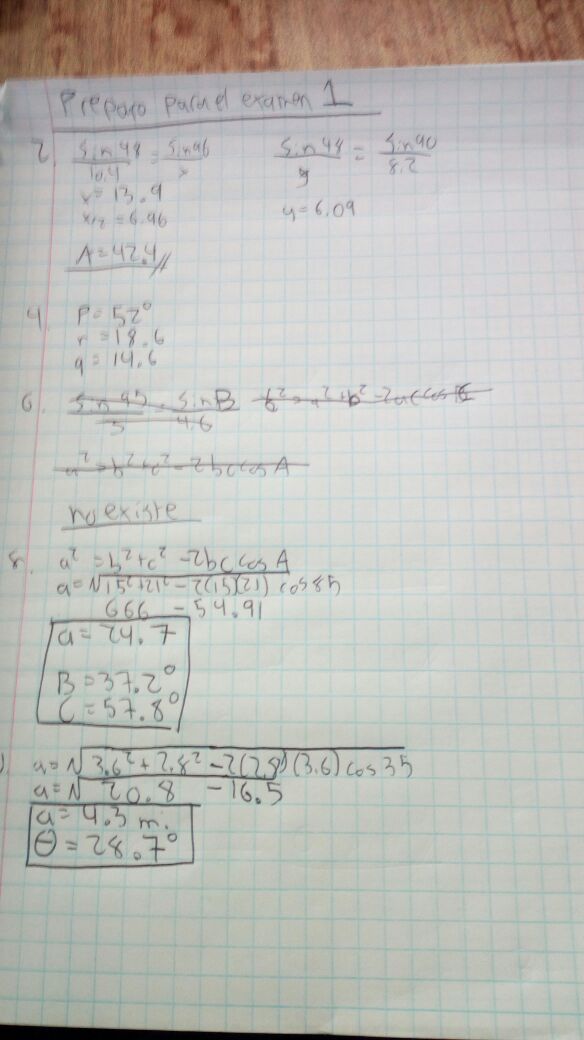 Preparo para el examen 1
2. sin 48 / 10.4 = sin 96 / x    sin 48 / y = sin 90 / 8.2
x = 13.9
x/2 = 6.96    y = 6.09
A = 42.4 //
4. P = 52°
r = 18.6
q = 14.6
6. sin 95 / 5 = sin B / 4.6
a² = b² + c² - 2bc cos A
no existe
8. a² = b² + c² - 2bc cos A
a = √15² + 21² - 2(15)(21) cos 85
666 - 54.91
a = 24.7
B = 37.2°
C = 57.8°
a = √3.6² + 2.8² - 2(2.8)(3.6) cos 35
a = √20.8 - 16.5
a = 4.3 m.
θ = 28.7°